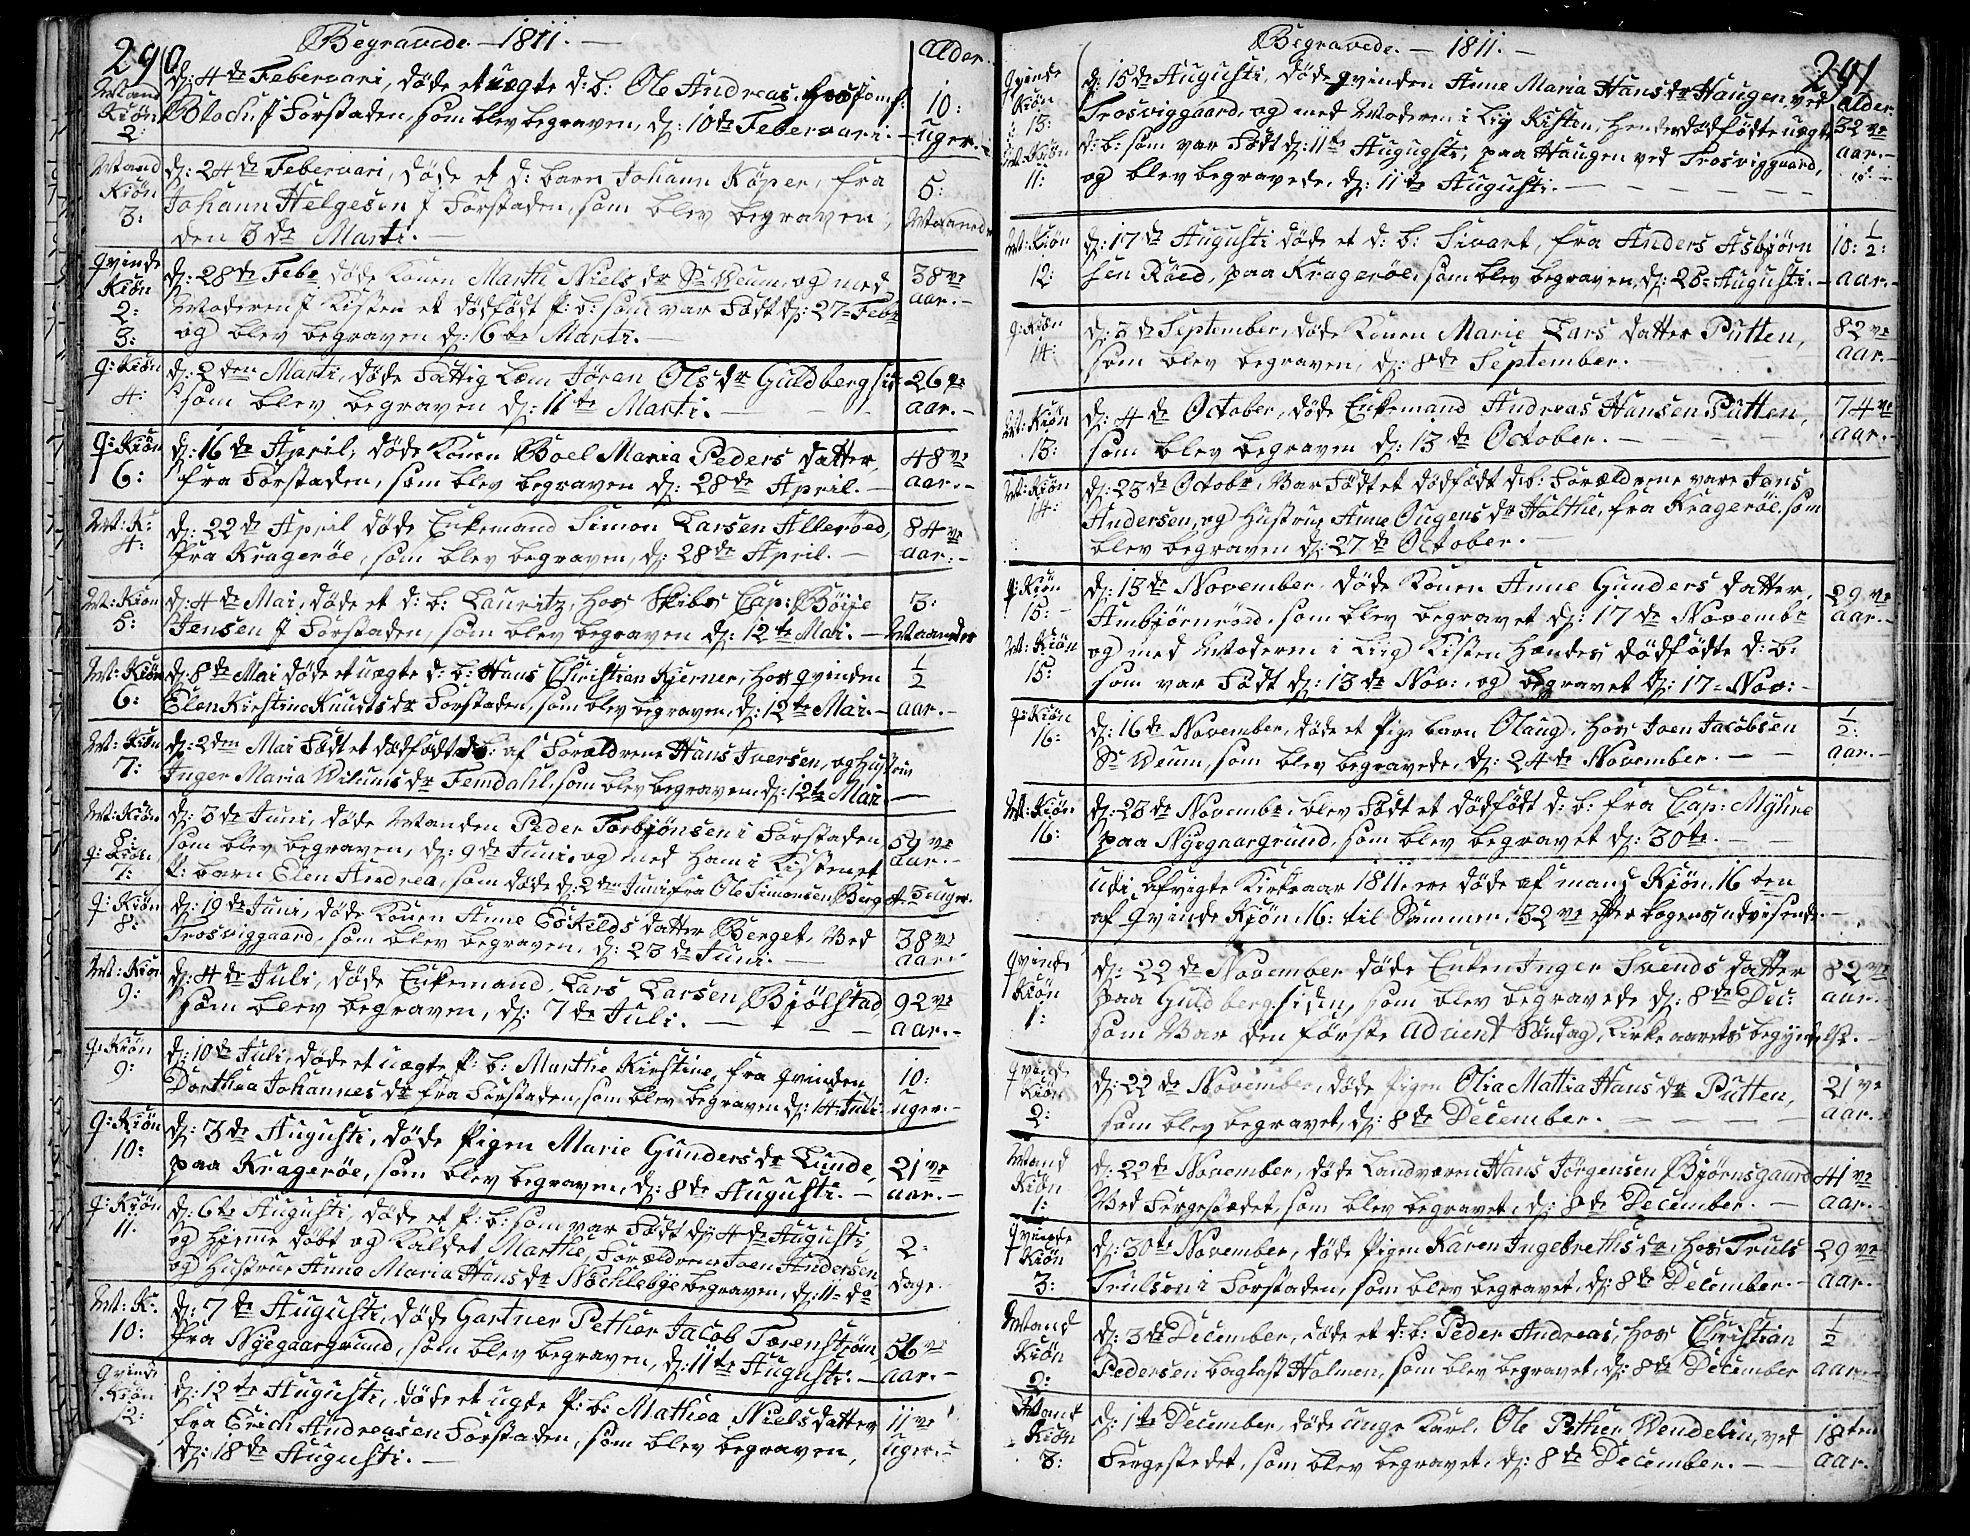 290
Begravede. — 1811. —
Alder.
Mand Kiøn 2:
d: 4de Februari, døde et uægte d: b: Ole Andreas, hos Jomf:
Bloch i Forstaden, som blev begraven, d: 10de Februari. —
10: uger. —
Mand Kiøn 3:
d: 24de Februari, døde et d: barn Johann Köper, fra
Johann Helgesen i Forstaden, som blev begraven,
den 3de Marti. —
5: Maaneder
qvinde Kiøn 2: 3:
d: 28de Febr døde Konen Marthe Niels dr Sr Weum, og med
Moderen i Kisten et dødfødt p: b: som var Født d: 27= Febr
og blev begraven d: 6te Marti. —
38ve aar. —
q: Kiøn 4:
d: 2den Marti, døde Fattig Lem Jören Ols dr Guldbergsiden
som blev begraven d: 11te Marti. —
26ve aar. —
q: Kiøn 6:
d: 16de April, døde Konen Boel Maria Peders datter,
fra Forstaden, som blev begraven d: 28de April. —
48ve aar. —
M: K: 4:
d: 22de April døde Enkemand Simon Larsen Alleröed,
fra Kragerøe, som blev begraven, d: 28de April. —
84ve aar. —
M: Kiøn 5:
d: 4de Mai, døde et d: b: Lauritz, hos Skibs Cap: Böije
Jensen i Forstaden, som blev begraven d: 12te Mai. —
3: Maaneder
M: Kiøn 6:
d: 8de Mai døde et uægte d: b: Hans Christian Kjerner, hos qvinden
Elen Kirstine Knudts dr Forstaden, som blev begraven, d: 12te Mai. —
1/2 aar. —
M: Kiøn 7:
d: 2den Mai Født et dødfødt d: b: af Forældrene Hans Iversen, og Hustrue
Inger Maria Wilums dr Femdahl, som blev begraven d: 12te Mai. —
M: Kiøn 8: q: Kiøn 7:
d: 3de Juni, døde Manden Peder Torbjönsen i Forstaden
som blev begraven, d: 9de Juni, og med ham i Kisten et
p: barn Elen Andrea, som døde d: 2den Juni fra Ole Simonsen Berget 3 uger.
59ve aar. —
q: Kiøn 8:
d: 19de Juni, døde Konen Anne Eskilds datter Berget, ved
Trosviggaard, som blev begraven, d: 23de Juni. —
38ve aar.
M: Kiøn 9:
d: 4de Juli, døde Enkemand Lars Larsen Bjölstad
som blev begraven, d: 7de Juli. —
92ve aar. —
q: Kiøn 9:
d: 10de Juli, døde et uægte p: b: Marthe Kirstine, fra qvinden
Dorthea Johannes dr fra Forstaden, som blev begraven d: 14. Juli
10: uger. —
q: Kiøn 10:
d: 3de Augusti, døde pigen Marie Gunders dr Lunde,
paa Kragerøe, som blev begraven, d: 8de Augusti. —
21ve aar. —
q: Kiøn 11:
d: 6te Augusti, døde et p: b: som var Født d: 4de Augusti,
og hjemme døbt og kaldet Marthe, Forældrene Joen Andersen
og Hustrue Anne Maria Hans dr Nöchlebye begraven, d: 11= do
2: dage.
M: K: 10:
d: 7de Augusti, døde Gartner Pether Jacob Tærenström,
fra Nyegaargrund, som blev begraven, d: 11te Augusti. —
56ve aar. —
qvinde Kiøn 12:
d: 12te Augusti, døde et ugte p: b: Mathea Nielsdatter
fra Erich Andreasen Forstaden, som blev begraven,
d: 18de Augusti. —
11ve uger. —
291
Begravede. — 1811. —
alder.
qvinde Kiøn 13: M: Kiøn 11:
d: 15de Augusti, døde qvinden Anne Maria Hans dr Haugen, ved
Trosviggaard, og med Moderen i Liig Kisten, hendes dødfødte uægte
d: b: som var Født d: 11te Augugsti, paa Haugen ved Trosviggaard,
og blev begravede, d: 11te Augusti. —
32ve aar. —
M: Kiøn 12:
d: 17de Augusti døde et d: b: Sivart, fra Anders Asbjörn
sen Röed, paa Kragerøe, som blev begraven, d: 25= Augusti. —
10: 1/2: aar. —
q: Kiøn 14:
d: 3de September, døde Konen Marie Lars datter Putten,
som blev begraven, d: 8de September.
82ve aar. —
M: Kiøn 13:
d: 4de October, døde Enkemand Andreas Hansen Putten,
som blev begraven d: 13de October. —
74ve aar. —
M: Kiøn 14:
d: 23de Octobr, Var Født et dødfødt d: b: Forældrene vare Jans
Andersen, og Hustrue Anne Ougens dr Holthe, fra Kragerøe, som
blev begraven d: 27de October. —
q: Kiøn 15: — M: Kiøn 15:
d: 13de November, døde Konen Anne Gunders datter,
Ambjörnröed, som blev begravet d: 17de Novembr
og med Moderen i Liig Kisten Hendes dødfødte d: b:
som var Født d: 13de Nov:, og begravet d: 17= Nov: —
29ve aar. —
q: Kiøn 16:
d: 16de November, døde et Pige barn Olaug, hos Joen Jacobsen
Sr Weum, som blev begravede, d: 24de November. —
1/2: aar. —
M: Kiøn 16:
d: 23de Novembr, blev Født et dødfødt d: b: fra Cap: Mijhre
paa Nyegaargrund, som blev begravet d: 30te. —
Udi Afvigte Kirkeaar 1811. ere døde af mands Kiøn, 16ten
af qvinde Kiøn. 16: til Sammen, 32ve efter bogens udvisende. —
qvinde Kiøn 1:
d: 22de November døde Enken Inger Svends datter
paa Guldbergsiden, som blev begravede d: 8de Dec:
som Var den første Advent Søndag, Kirkeaarets begyndelse. —
82ve aar.
qvinde Kiøn 2:
d: 22de November, døde pigen Olia Mattia Hans dr Putten,
som blev begravet, d: 8de December. —
21ve aar.
Mand Kiøn 1:
d: 22de November, døde Landværn Hans Jörgensen Bjørnsgaard
Ved Fergestædet, som blev begravet, d: 8de December. —
41ve aar. —
qvinde Kiøn 3:
d: 30te November, døde pigen Karen Ingebreths dr, hos Truls
Trulsen i Forstaden, som blev begravet, d: 8de December. —
29ve aar. —
Mand Kiøn 2:
d: 3de December, døde et d: b: Peder Andreas, hos Christian
Pedersen Baglast Holmen, som blev begravet, d: 8de December
1/2 aar. —
Mand Kiøn 3:
d: 1te December, døde unge Karl, Ole Pether Wendelin, ved
Fergestedet, som blev begravet, d: 8de December. —
18ten aar.